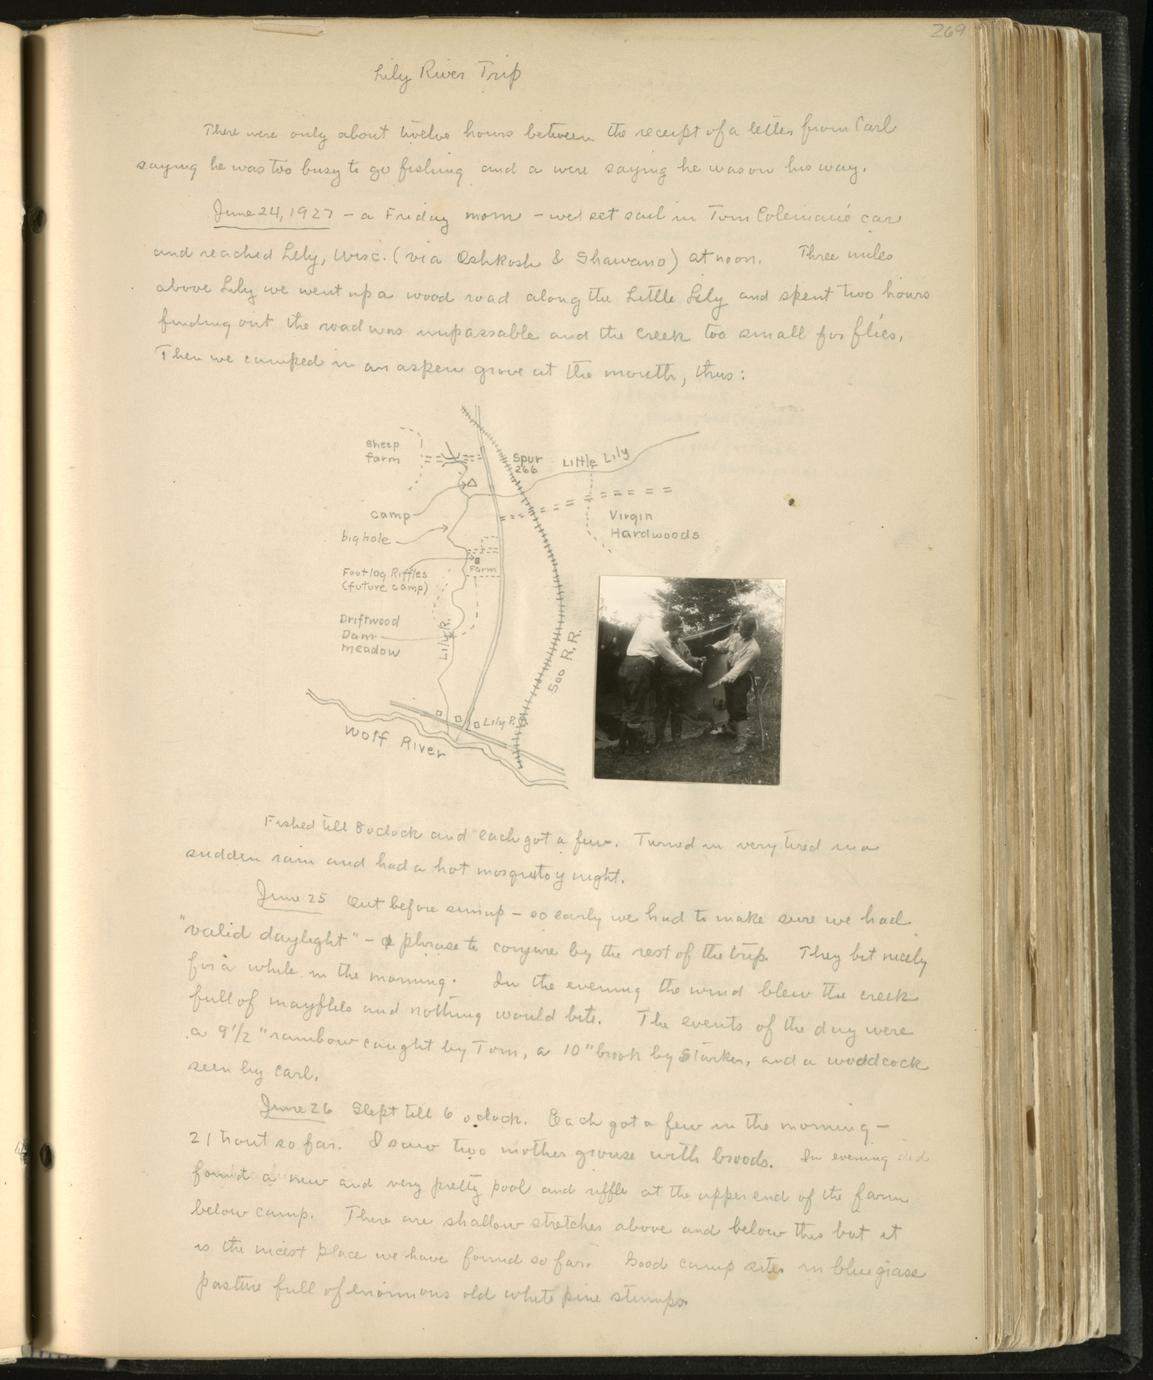 269
Lily River Trip
There were only about twelve hours between the receipt of a letter from Carl
saying he was too busy to go fishing and a wire saying he was on his way.
June 24, 1927 - a Friday morn - we set sail in Tom Coleman's car
and reached Lily, Wisc. (via Oshkosh & Shawano) at noon. Three miles
above Lily we went up a wood road along the Little Lily and spent two hours
finding out the road was impassable and the creek too small for flies.
Then we camped in an aspen grove at the mouth, thus:
Sheep
farm
Spur
266
Little Lily
camp
big hole
Virgin
Hardwoods
Footlog Riffles
(future camp)
Farm
Driftwood
Dam
meadow
Lily R.
Soo R.R.
Lily P.O.
Wolf River
Fished till 8 oclock and each got a few. Turned in very tired in a
sudden rain and had a hot mosquitoy night.
June 25 Out before sunup - so early we had to make sure we had
"valid daylight" - a phrase to conjure by the rest of the trip. They bit nicely
for a while in the morning. In the evening the wind blew the creek
full of mayflies and nothing would bite. The events of the day were
a 9 1/2" rainbow caught by Tom, a 10" brook by Starker, and a woodcock
seen by Carl.
June 26 Slept till 6 oclock. Each got a few in the morning -
21 trout so far. I saw two mother grouse with broods. In evening
found a new and very pretty pool and riffle at the upper end of the farm
below camp. There are shallow stretches above and below this but it
is the nicest place we have found so far. Good camp sites in bluegrass
pasture full of enormous old white pine stumps.